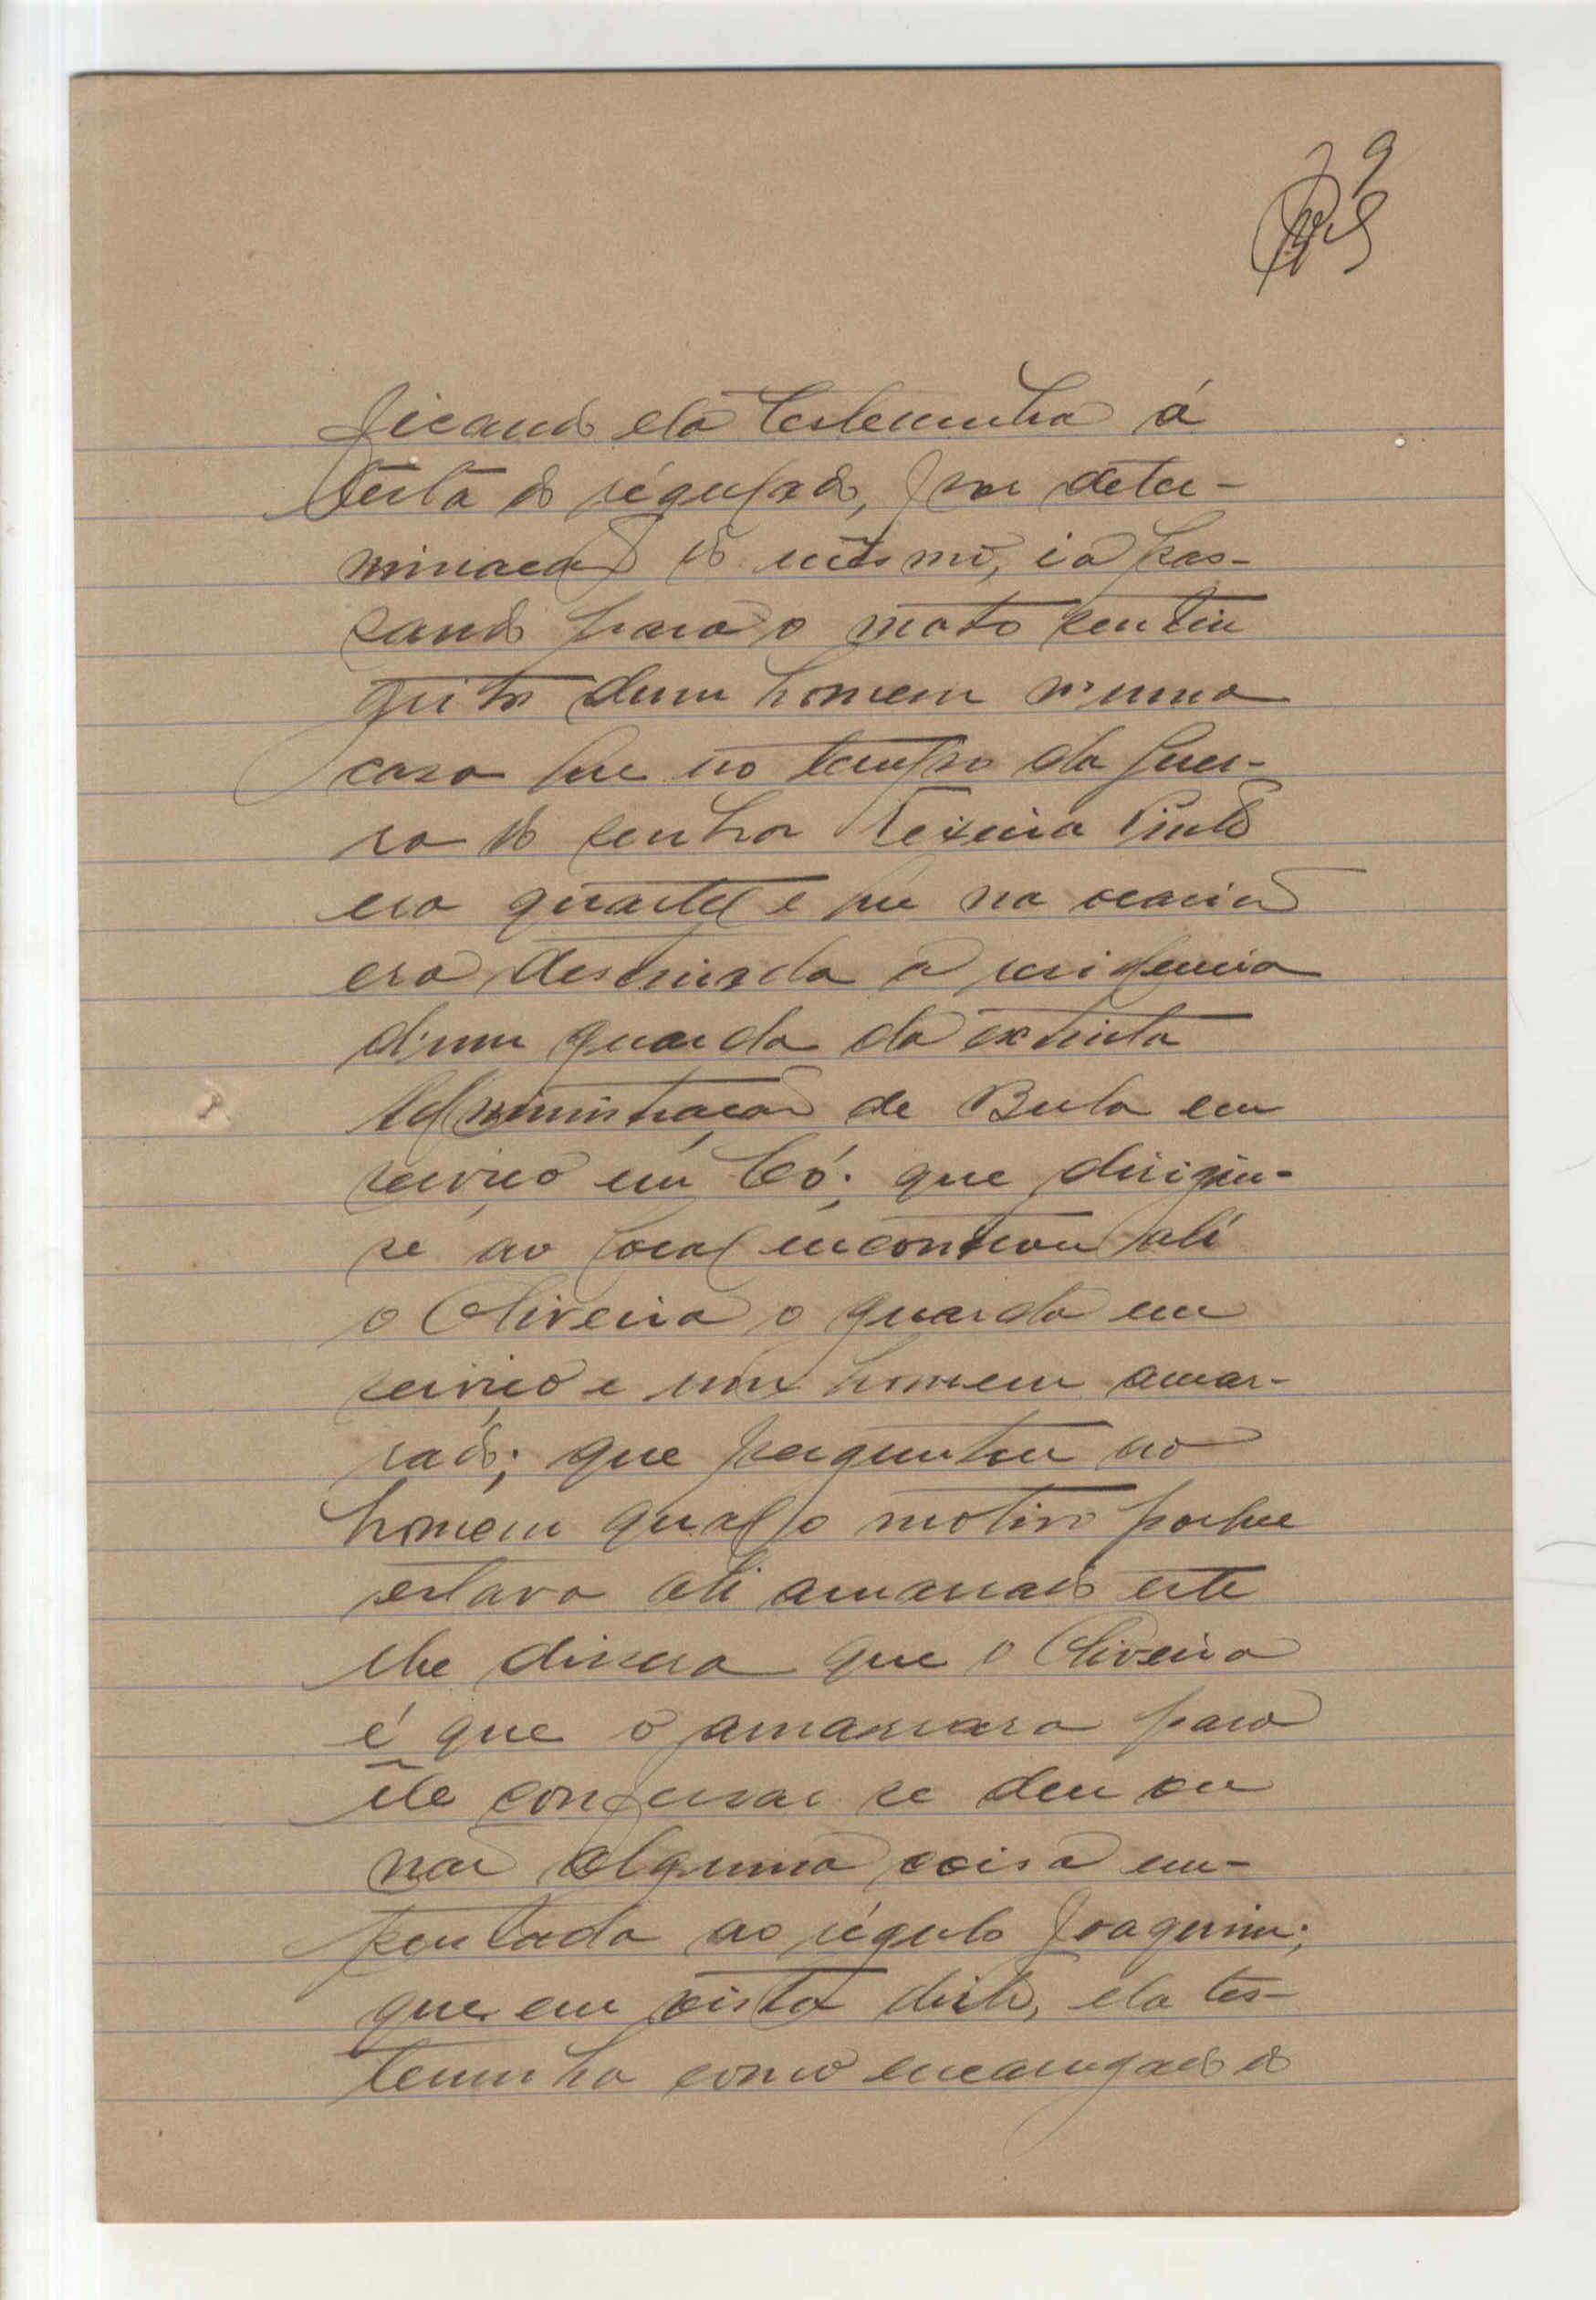 9
ficando ela testemunha á
testa do régulado, por deter-
minação do mesmo, ia pas-
sando para o mato sentiu
grito dum homem n'uma
casa que no tempo da guer-
ra do senhor Teixeira Pinto
era quartel e que na ocasião
era destinada a residencia
d'um guarda da extinta
Administração de Bula em
serviço em Có; que dirigiu-
se ao local encontrou ali
o Oliveira o guarda em
serviço e um homem amar-
rado; que perguntou ao
homem qual o motivo porque
estava ali amarrado este
lhe dissera que o Oliveira
é que o amarrara para
êle confessar se deu ou
não alguma coisa em-
prestada ao régulo Joaquim;
que em vista disto, ela tes-
temunha como encarregado do